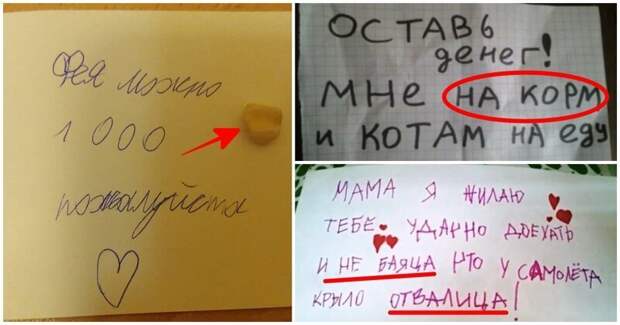 Фея можно
1000
пожалуйста
ОСТАВЬ
денег!
МНЕ НА КОРМ
и КОТАМ НА еду
МАМА Я ЖИЛАЮ
ТЕБЕ УДАЧНО ДОЕХАТЬ
И НЕ БАЯЦА ЧТО У САМОЛЁТА
КРЫЛО ОТВАЛИЦА!